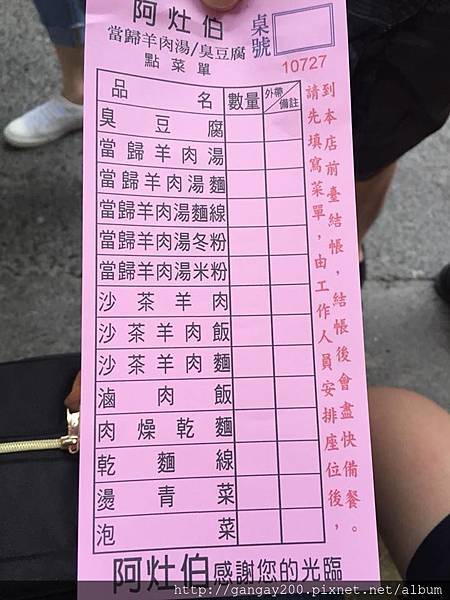 阿灶伯
當歸羊肉湯/臭豆腐
點菜單
桌號
10727
品名 數量 外帶 備註
臭豆腐
當歸羊肉湯
當歸羊肉湯麵
當歸羊肉湯麵線
當歸羊肉湯冬粉
當歸羊肉湯米粉
沙茶羊肉
沙茶羊肉飯
沙茶羊肉麵
滷肉飯
肉燥乾麵
乾麵線
燙青菜
泡菜
到本店前臺結帳，結帳後會盡快備餐。
請先填寫菜單，由工作人員安排座位後，
阿灶伯感謝您的光臨
http://gangay200.pixnet.net/album